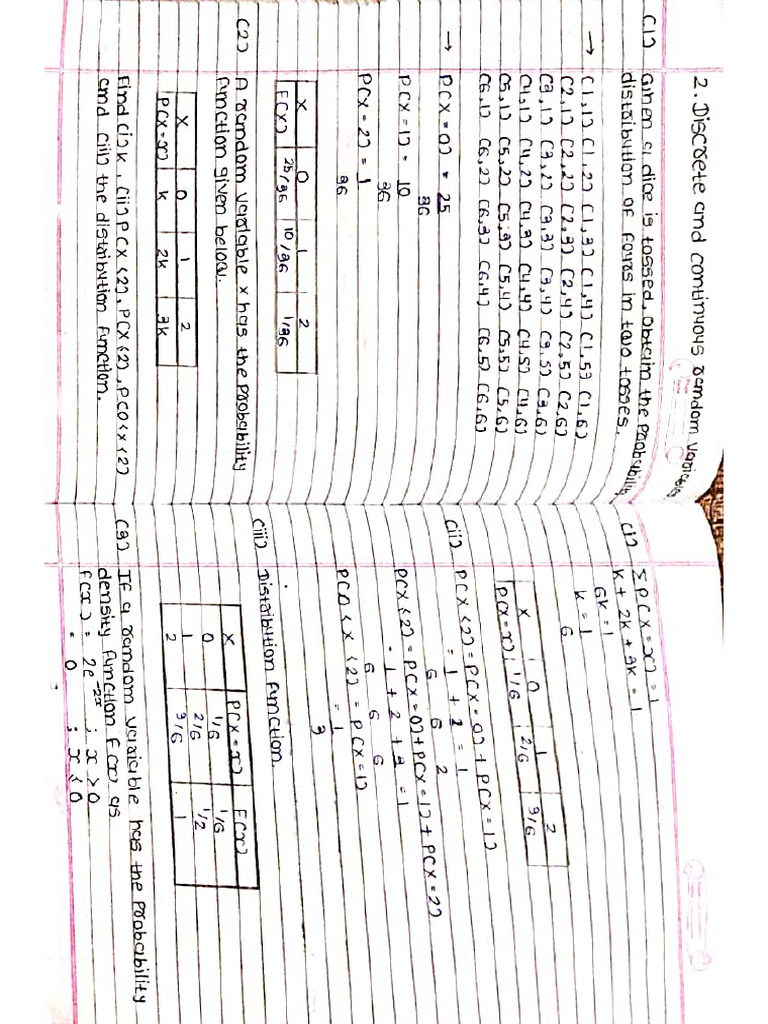 2. Discrete and continuous random variable
(1) Given a dice is tossed, obtain the probability
distribution of fours in two tosses.
→ (1,1) (1,2) (1,3) (1,4) (1,5) (1,6)
(2,1) (2,2) (2,3) (2,4) (2,5) (2,6)
(3,1) (3,2) (3,3) (3,4) (3,5) (3,6)
(4,1) (4,2) (4,3) (4,4) (4,5) (4,6)
(5,1) (5,2) (5,3) (5,4) (5,5) (5,6)
(6,1) (6,2) (6,3) (6,4) (6,5) (6,6)
→ P(X=0) = 25/36
P(X=1) = 10/36
P(X=2) = 1/36
X 0 1 2
F(X) 25/36 10/36 1/36
(2) A random variable x has the probability
function given below.
X 0 1 2
P(X=x) k 2k 3k
Find (i) k, (ii) P(X<2), P(X≤2), P(0<x<2)
and (iii) the distribution function.
(i) ΣP(X=x)=1
k + 2k + 3k = 1
6k = 1
k = 1/6
X 0 1 2
P(X=x) 1/6 2/6 3/6
(ii) P(X<2) = P(X=0) + P(X=1)
= 1/6 + 2/6 = 1/2
P(X≤2) = P(X=0) + P(X=1) + P(X=2)
= 1/6 + 2/6 + 3/6 = 1
P(0<X<2) = P(X=1)
= 1/3
(iii) Distribution function.
X P(X=x) F(x)
0 1/6 1/6
1 2/6 1/2
2 3/6 1
(3) If a random variable has the probability
density function f(x) as
f(x) = 2e^-2x ; x>0
= 0 ; x≤0